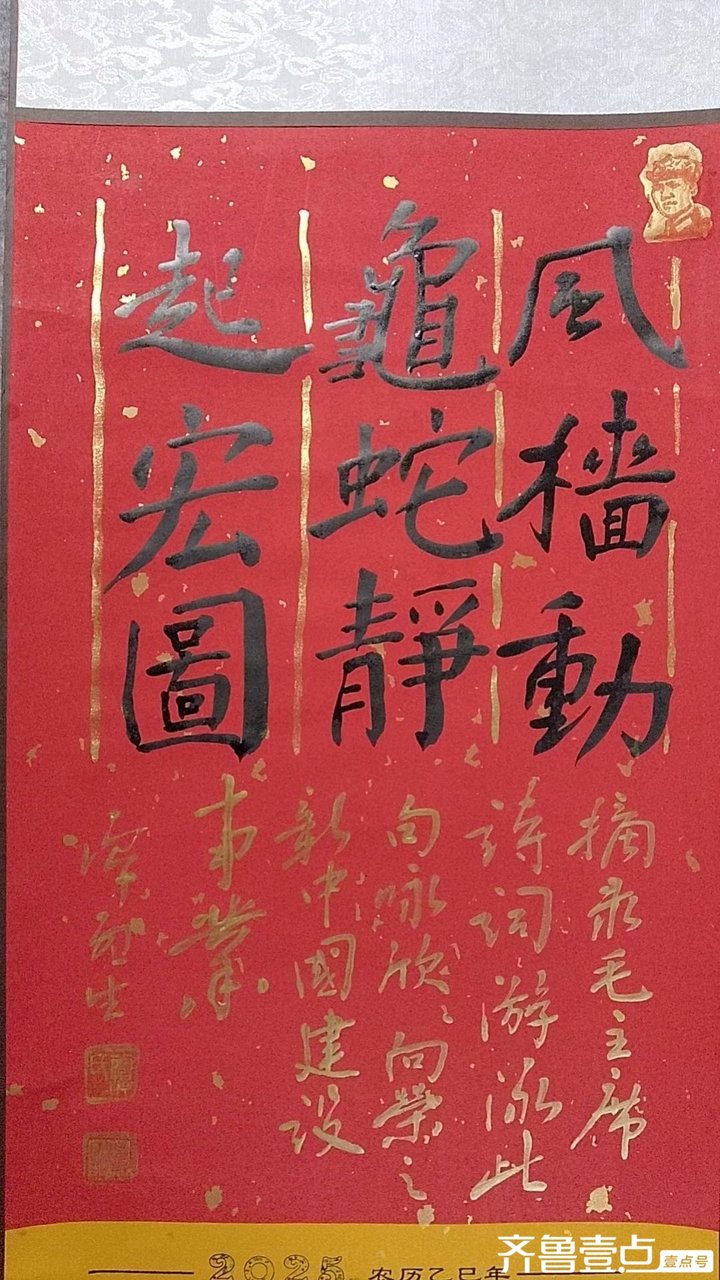 風檣動
龜蛇靜
起宏圖
摘录毛主席
詩词游泳此
句咏欣〻向榮之
新中國建设
事業
2025 农历乙巳年
齐鲁壹点 壹点号